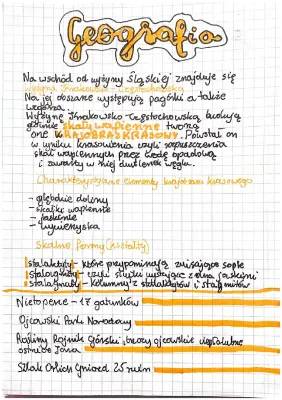 Geografia
Na wschód od wyżyny Śląskiej znajduje się
Wyżyna Krakowsko-Częstochowska
Na jej obszarze występują pagórki a także
wzgórza.
Wyżynę Krakowsko-Częstochowską budują
głównie skały wapienne tworzą
one KRAJOBRAZ KRASOWY. Powstał on
w wyniku krasowienia czyli rozpuszczenia
skał wapiennych przez wodę opadową
i zawarty w niej dwutlenek węgla.
Charakterystyczne elementy krajobrazu krasowego
- głębokie doliny
- skałki wapienne
- jaskinie
- wywierzyska
Skalne formy (kształty)
stalaktyty - które przypominają zwisające sople
stalagmity - czyli słupki wystające z dna jaskini
stalagnaty - kolumny z stalaktytów i stalagmitów
Nietoperze - 17 gatunków
Ojcowski Park Narodowy
Rośliny Rojnik Górski, brzozy ojcowskie
ostnica Jana
Szlak Orlich Gniazd